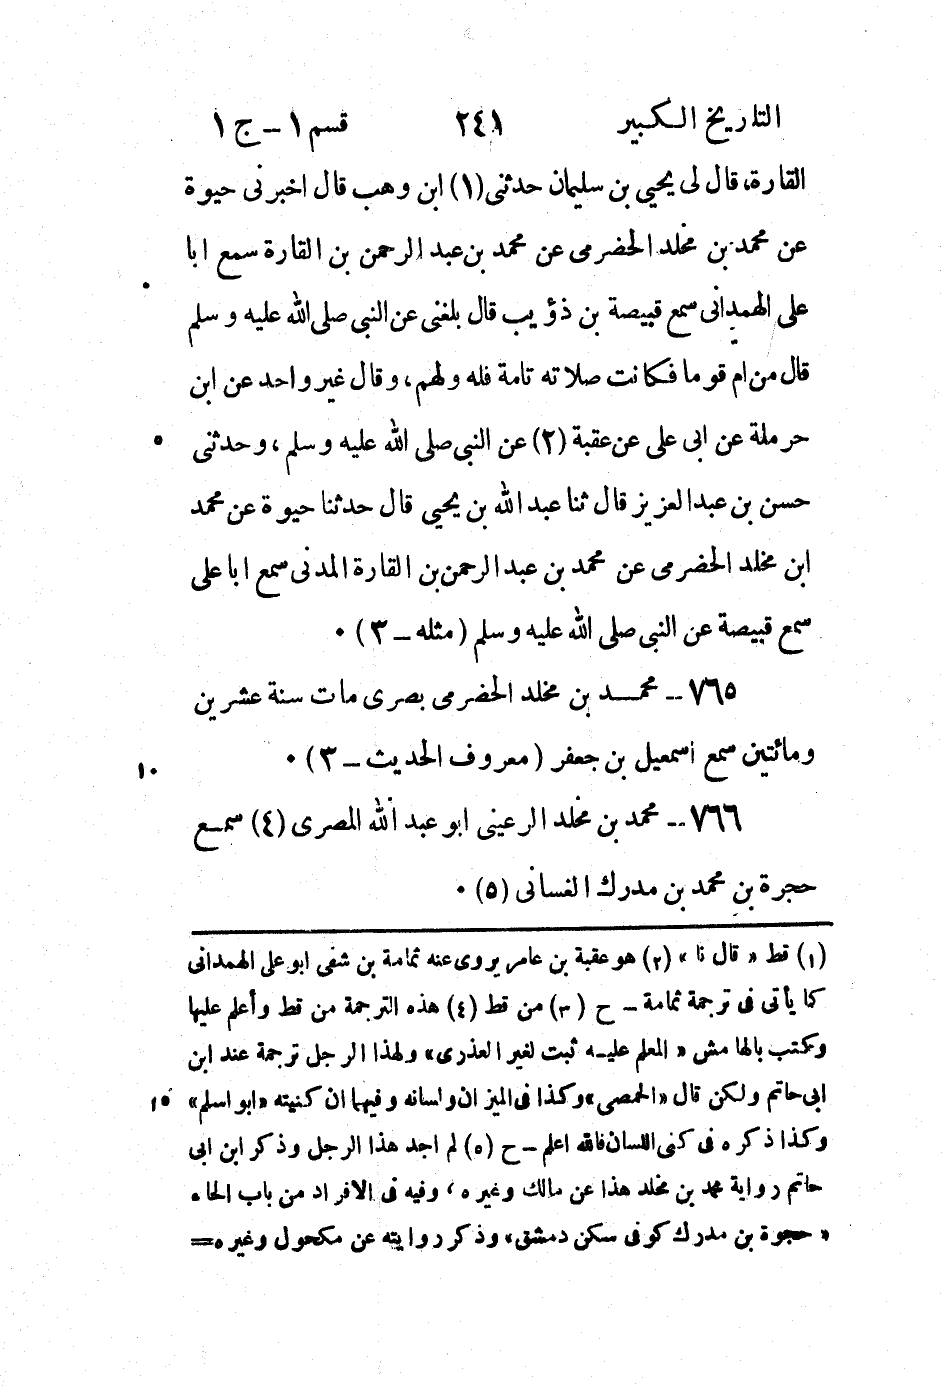 التاريخ الكبير ٢٤١ قسم ١ – ج ١
القارة، قال لى يحيى بن سليمان حدثنى (١) ابن وهب قال اخبرنى حيوة
عن محمد بن مخلد الحضرمى عن محمد بن عبد الرحمن بن القارة سمع ابا
على الهمدانى سمع قبيصة بن ذؤيب قال بلغنى عن النبى صلى الله عليه وسلم
قال من ام قوما فكانت صلاته تامة فله ولهم، وقال غير واحد عن ابن
حرملة عن ابى على عن عقبة (٢) عن النبى صلى الله عليه وسلم، وحدثنى ٥
حسن بن عبد العزيز قال ثنا عبد الله بن يحيى قال حدثنا حيوة عن محمد
ابن مخلد الحضرمى عن محمد بن عبد الرحمن بن القارة المدنى سمع ابا على
سمع قبيصة عن النبى صلى الله عليه وسلم (مثله – ٣) ٠
٧٦٥ – محمد بن مخلد الحضرمى بصرى مات سنة عشرين
ومائتين سمع اسمعيل بن جعفر (معروف الحديث – ٣) ٠ ١٠
٧٦٦ – محمد بن مخلد الرعينى ابو عبد الله المصرى (٤) سمع
حجرة بن محمد بن مدرك الغسانى (٥) ٠
(١) قط « قال نا » (٢) هو عقبة بن عامر يروى عنه ثمامة بن شفى ابو على الهمدانى
كما يأتى فى ترجمة ثمامة – ح (٣) من قط (٤) هذه الترجمة من قط وأعلم عليها
وكتب بالهامش « المعلم عليه ثبت لغير العذرى» ولهذا الرجل ترجمة عند ابن
ابى حاتم ولكن قال «الحمصى» وكذا فى الميزان ولسانه وفيهما ان كنيته «ابو اسلم» ١٥
وكذا ذكره فى كنى اللسان فالله اعلم – ح (٥) لم اجد هذا الرجل وذكر ابن ابى
حاتم رواية محمد بن مخلد هذا عن مالك وغيره، وفيه فى الافراد من باب الحاء
« حجوة بن مدرك كوفى سكن دمشق» وذكر روايته عن مكحول وغيره=